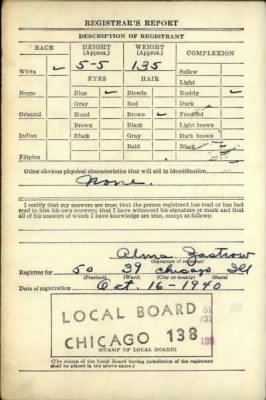 REGISTRAR'S REPORT
DESCRIPTION OF REGISTRANT
RACE HEIGHT (Approx.) WEIGHT (Approx.) COMPLEXION
White ✓ 5-5 135 Sallow
EYES HAIR Light
Negro Blue ✓ Blonde Ruddy ✓
Gray Red Dark
Oriental Hazel Brown ✓ Freckled
Brown Black Light brown
Indian Black Gray Dark brown
Bald Black
Filipino
Other obvious physical characteristics that will aid in identification
None.
I certify that my answers are true; that the person registered has read or has had
read to him his own answers; that I have witnessed his signature or mark and that
all of his answers of which I have knowledge are true, except as follows:
Alma Zastrow
(Signature of registrar)
Registrar for 50 39 Chicago Ill
(Precinct) (Ward) (City or county) (State)
Date of registration Oct. 16-1940
LOCAL BOARD
CHICAGO 138
(STAMP OF LOCAL BOARD)
(The stamp of the Local Board having jurisdiction of the registrant
shall be placed in the above space.)